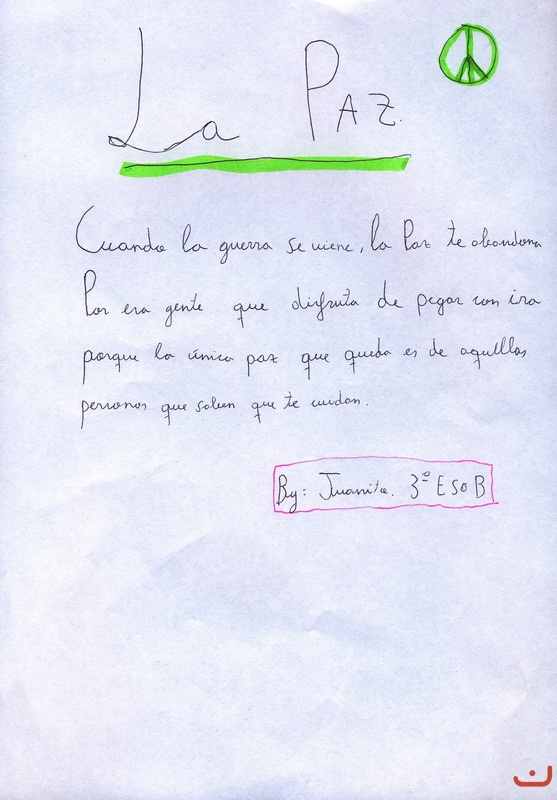 La Paz.
Cuando la guerra se viene, la Paz te abandona
Por esa gente que disfruta de pegar con ira
porque la única paz que queda es de aquellas
personas que saben que te cuidan.
By: Juanita. 3º ESO B